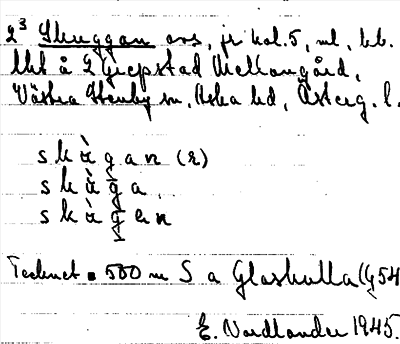 2³ Skuggan avs, jr kol. 5, ml, bb.
lht å 2 Grepstad Mellangård,
Västra Stenby sn, Aska hd, Österg. l.
s k à g a n (r)
s k à g a
s k à g e n
Tecknet • 500 m S a Glaskulla (G54
E. Nordlander 1945.